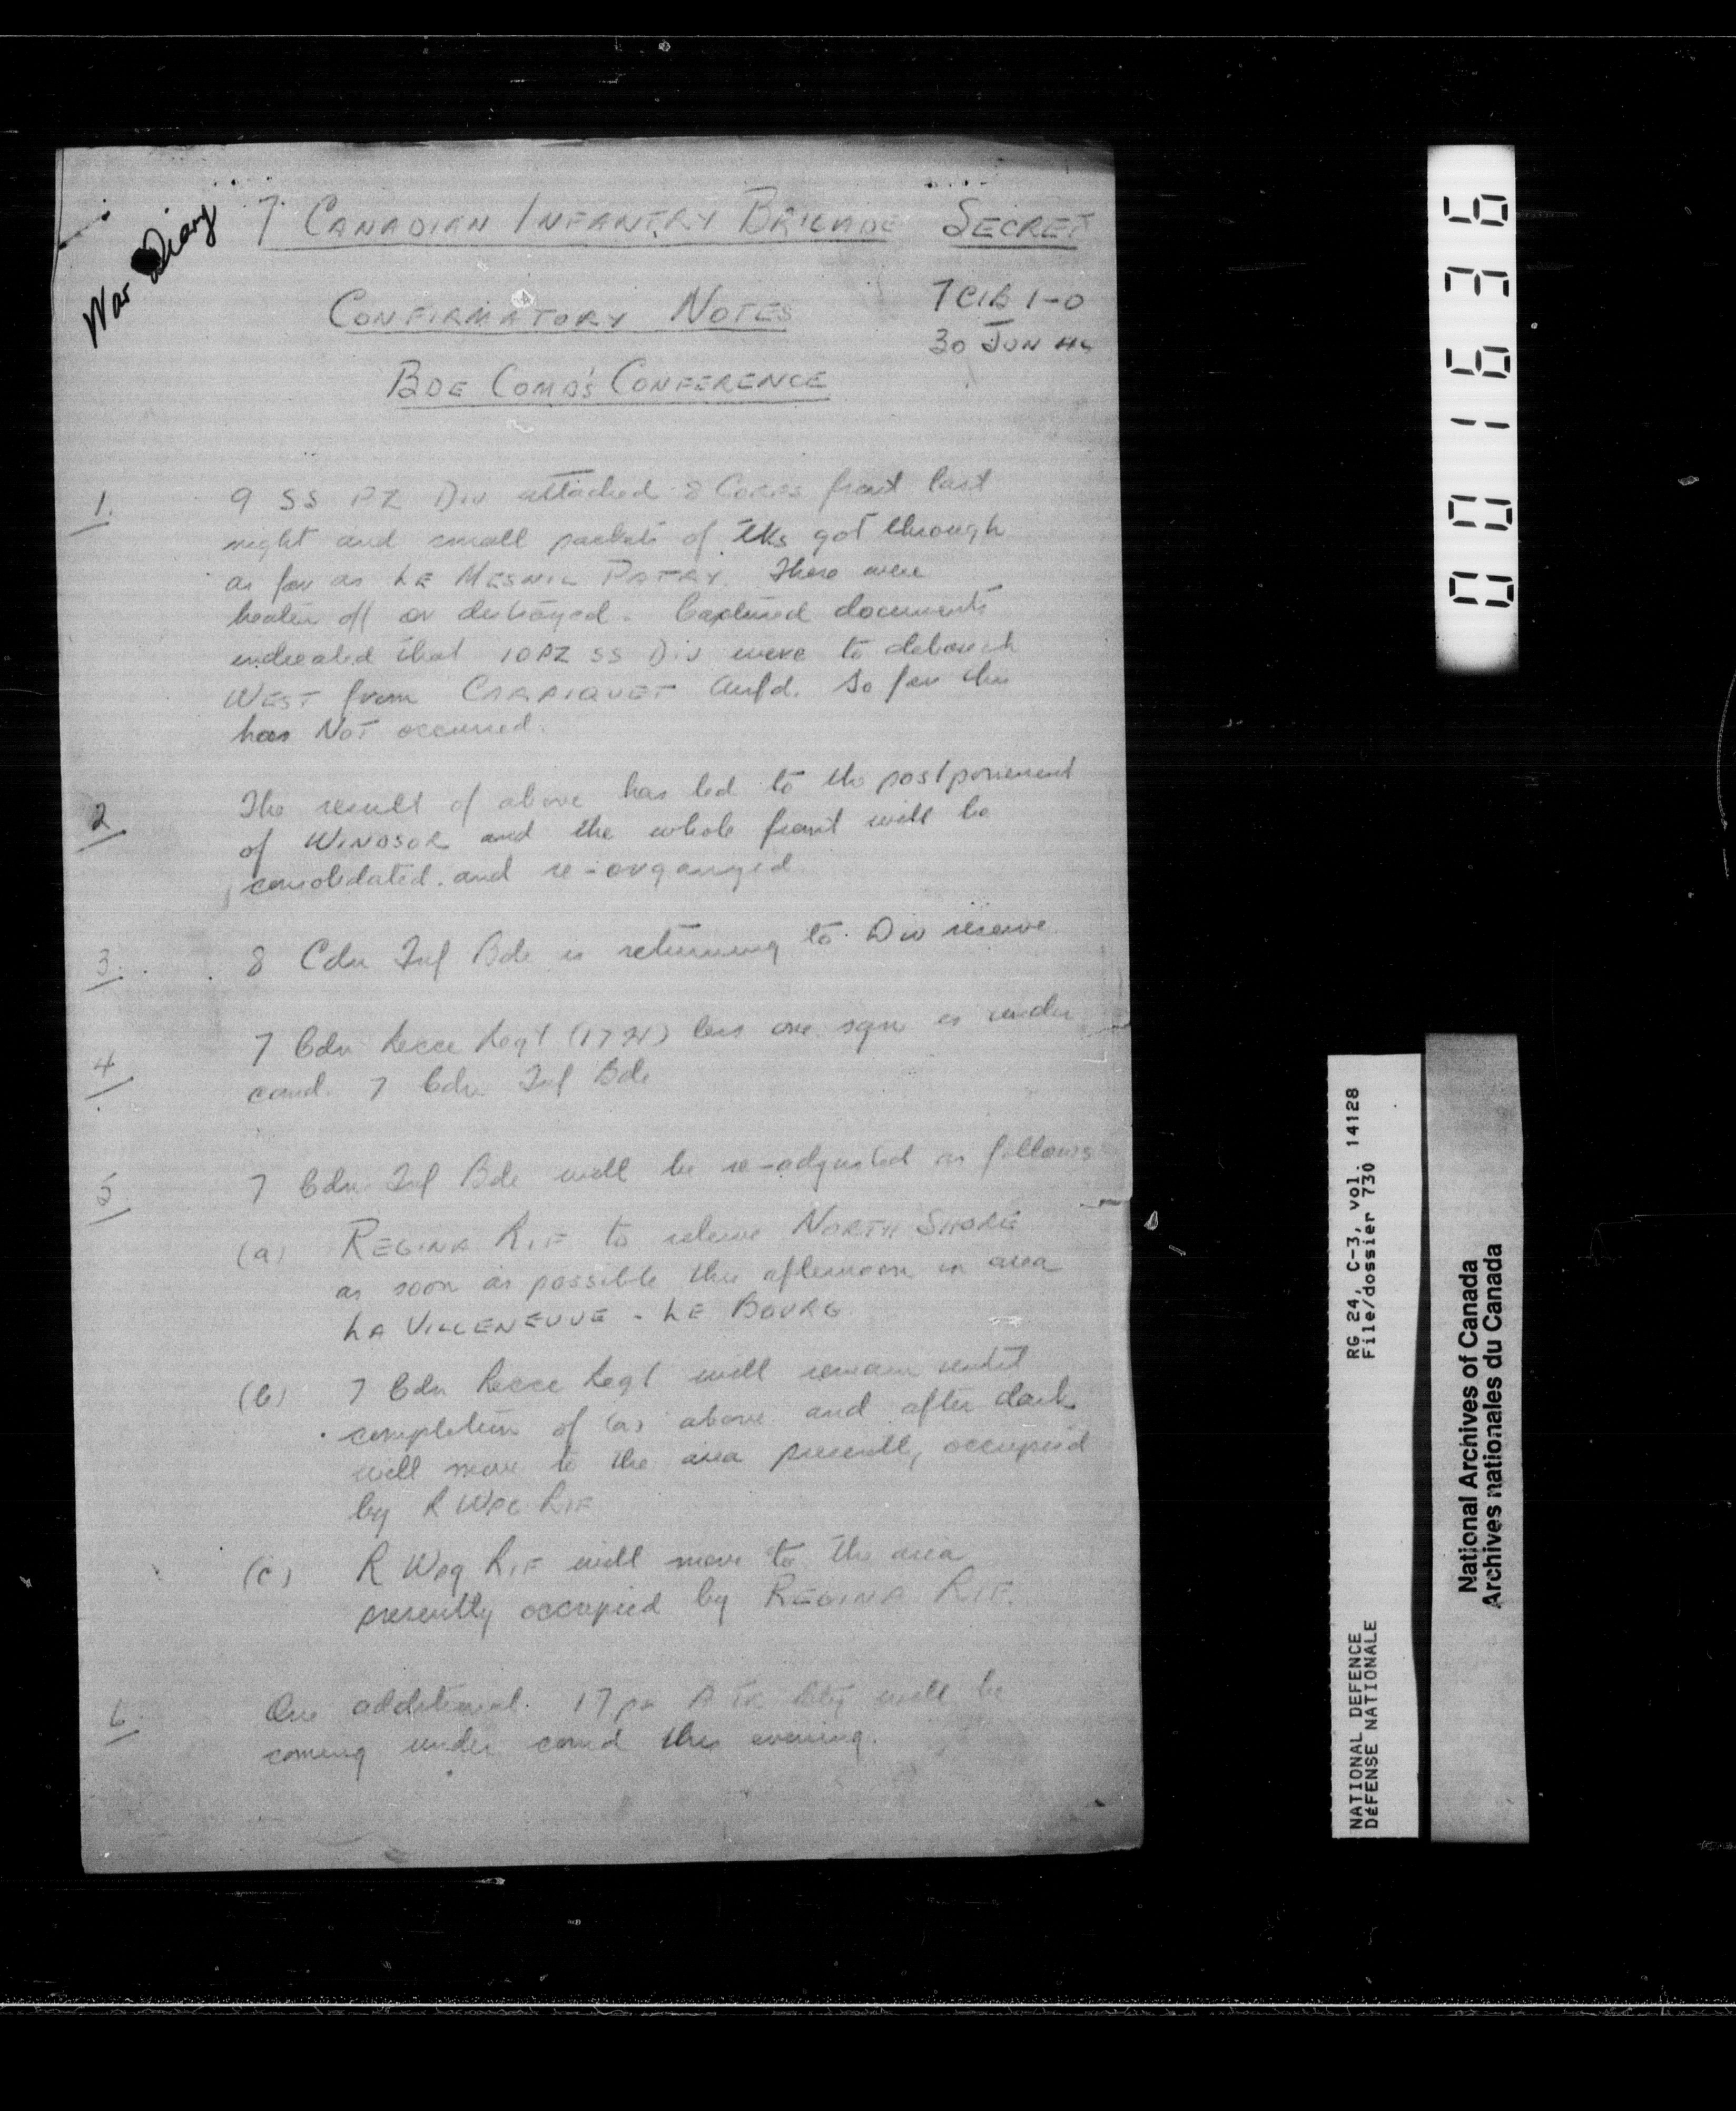 War Diary
7 CANADIAN INFANTRY BRIGADE SECRET
CONFIRMATORY NOTES
7 CIB 1-0
30 JUN 44
BDE COMD'S CONFERENCE
1. 9 SS PZ Div attacked 8 CORPS front last
night and small packets of tks got through
as far as LE MESNIL PATRY. These were
beaten off or destroyed. Captured documents
indicated that 10 PZ SS Div were to debouch
WEST from CARPIQUET Airfd. So far this
has NOT occurred.
2 The result of above has led to the postponement
of WINDSOR and the whole front will be
consolidated and re-organized
3. 8 Cdn Inf Bde is returning to Div reserve
4 7 Cdn Recce Regt (17 H) less one sqn is under
comd. 7 Cdn Inf Bde
5 7 Cdn Inf Bde will be re-adjusted as follows
(a) REGINA RIF to relieve NORTH SHORE
as soon as possible this afternoon in area
LA VILLENEUVE - LE BOURG
(b) 7 Cdn Recce Regt will remain until
completion of (a) above and after dark
will move to the area presently occupied
by R WPG RIF
(c) R Wpg RIF will move to the area
presently occupied by REGINA RIF.
6. One additional 17 pr A Tk Bty will be
coming under comd this evening.
001636
RG 24, C-3, vol. 14128
File/dossier 730
NATIONAL DEFENCE
DéFENSE NATIONALE
National Archives of Canada
Archives nationales du Canada